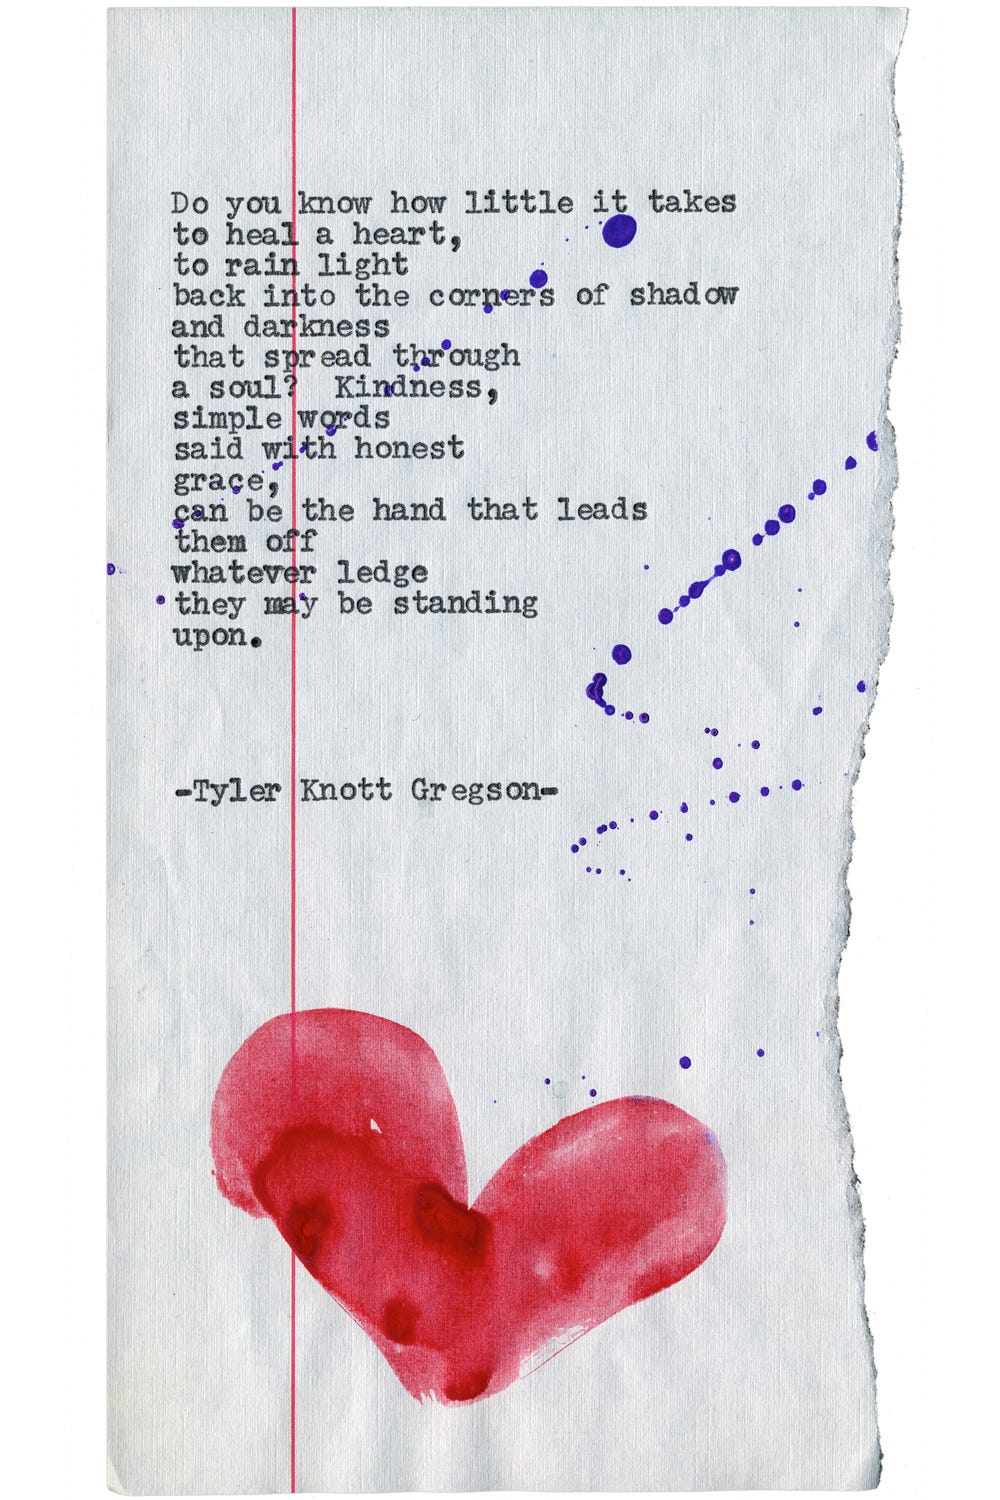 Do you know how little it takes
to heal a heart,
to rain light
back into the corners of shadow
and darkness
that spread through
a soul?  Kindness,
simple words
said with honest
grace,
can be the hand that leads
them off
whatever ledge
they may be standing
upon.
-Tyler Knott Gregson-